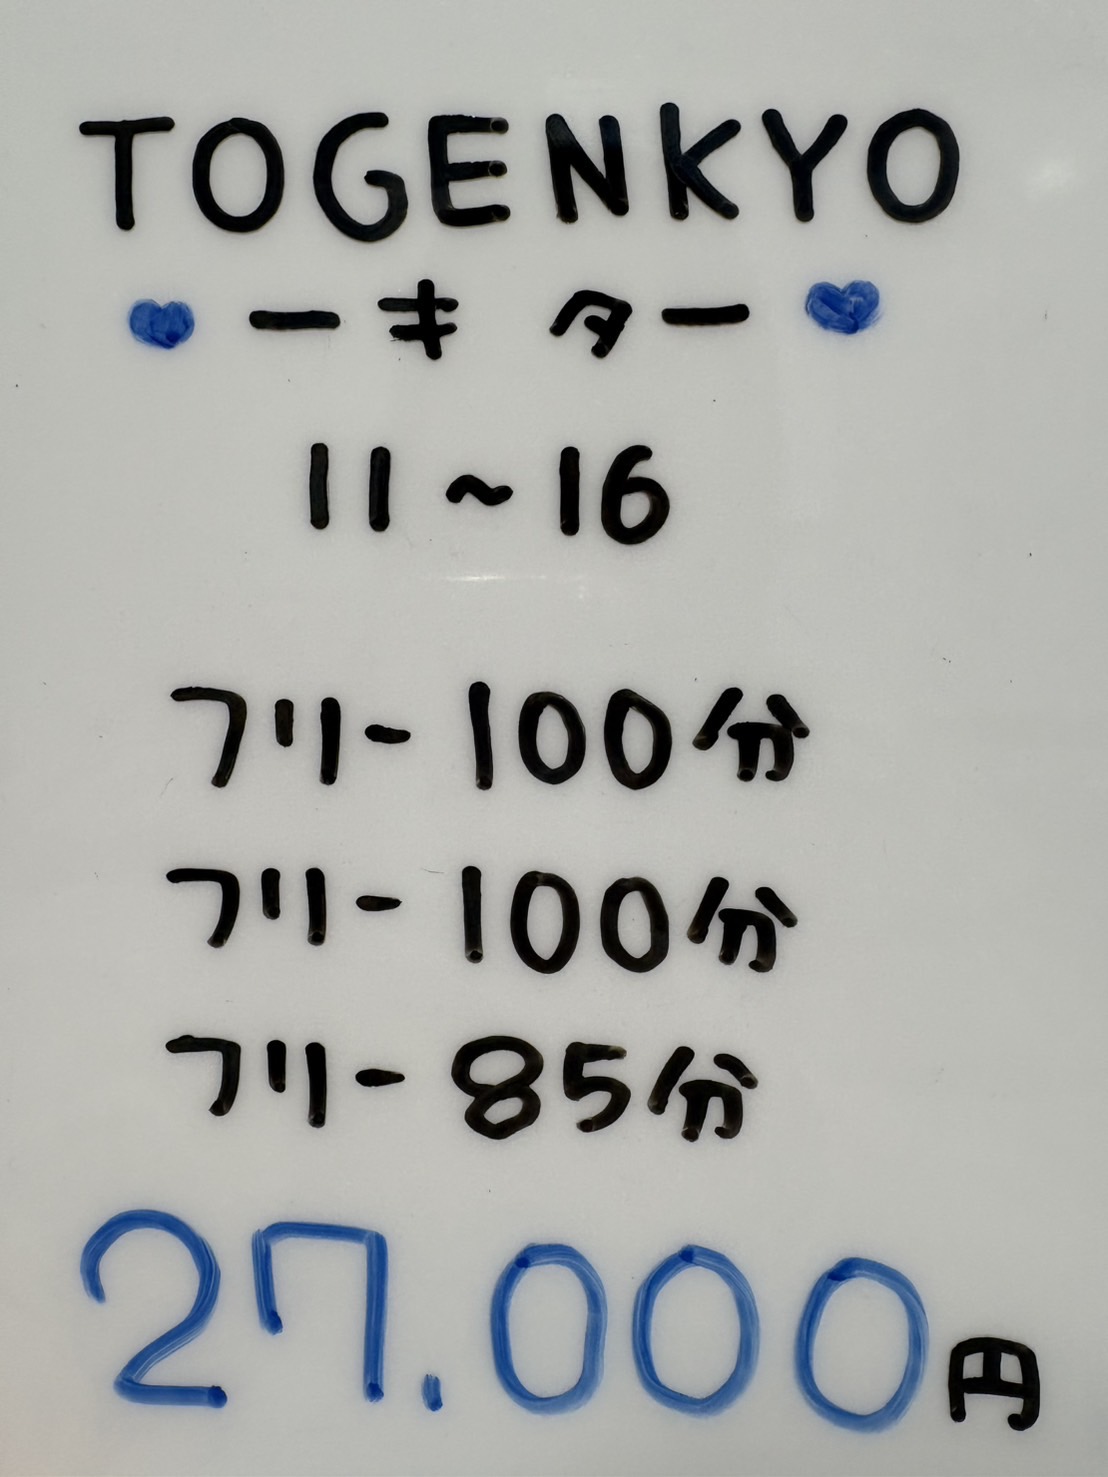 TOGENKYO
💙 一キ ター 💙
11~16
フリー 100分
フリー 100分
フリー 85分
27.000円